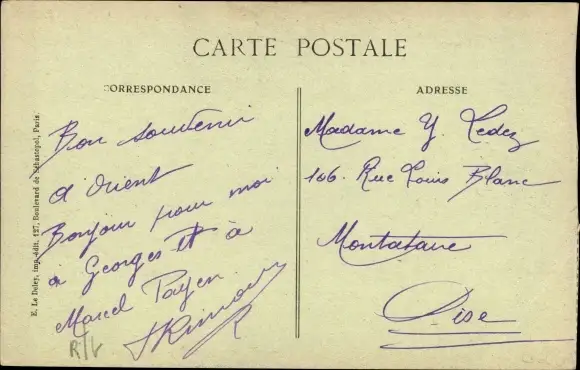 CARTE POSTALE
CORRESPONDANCE
Bon souvenir
d'Orient
Bonjour pour moi
à Georges et à
Marcel Payen
R/V
ADRESSE
Madame Y. Ledez
106. Rue Louis Blanc
Montataire
Oise
E. Le Deley, imp.-édit. 127, Boulevard de Sébastopol, Paris.